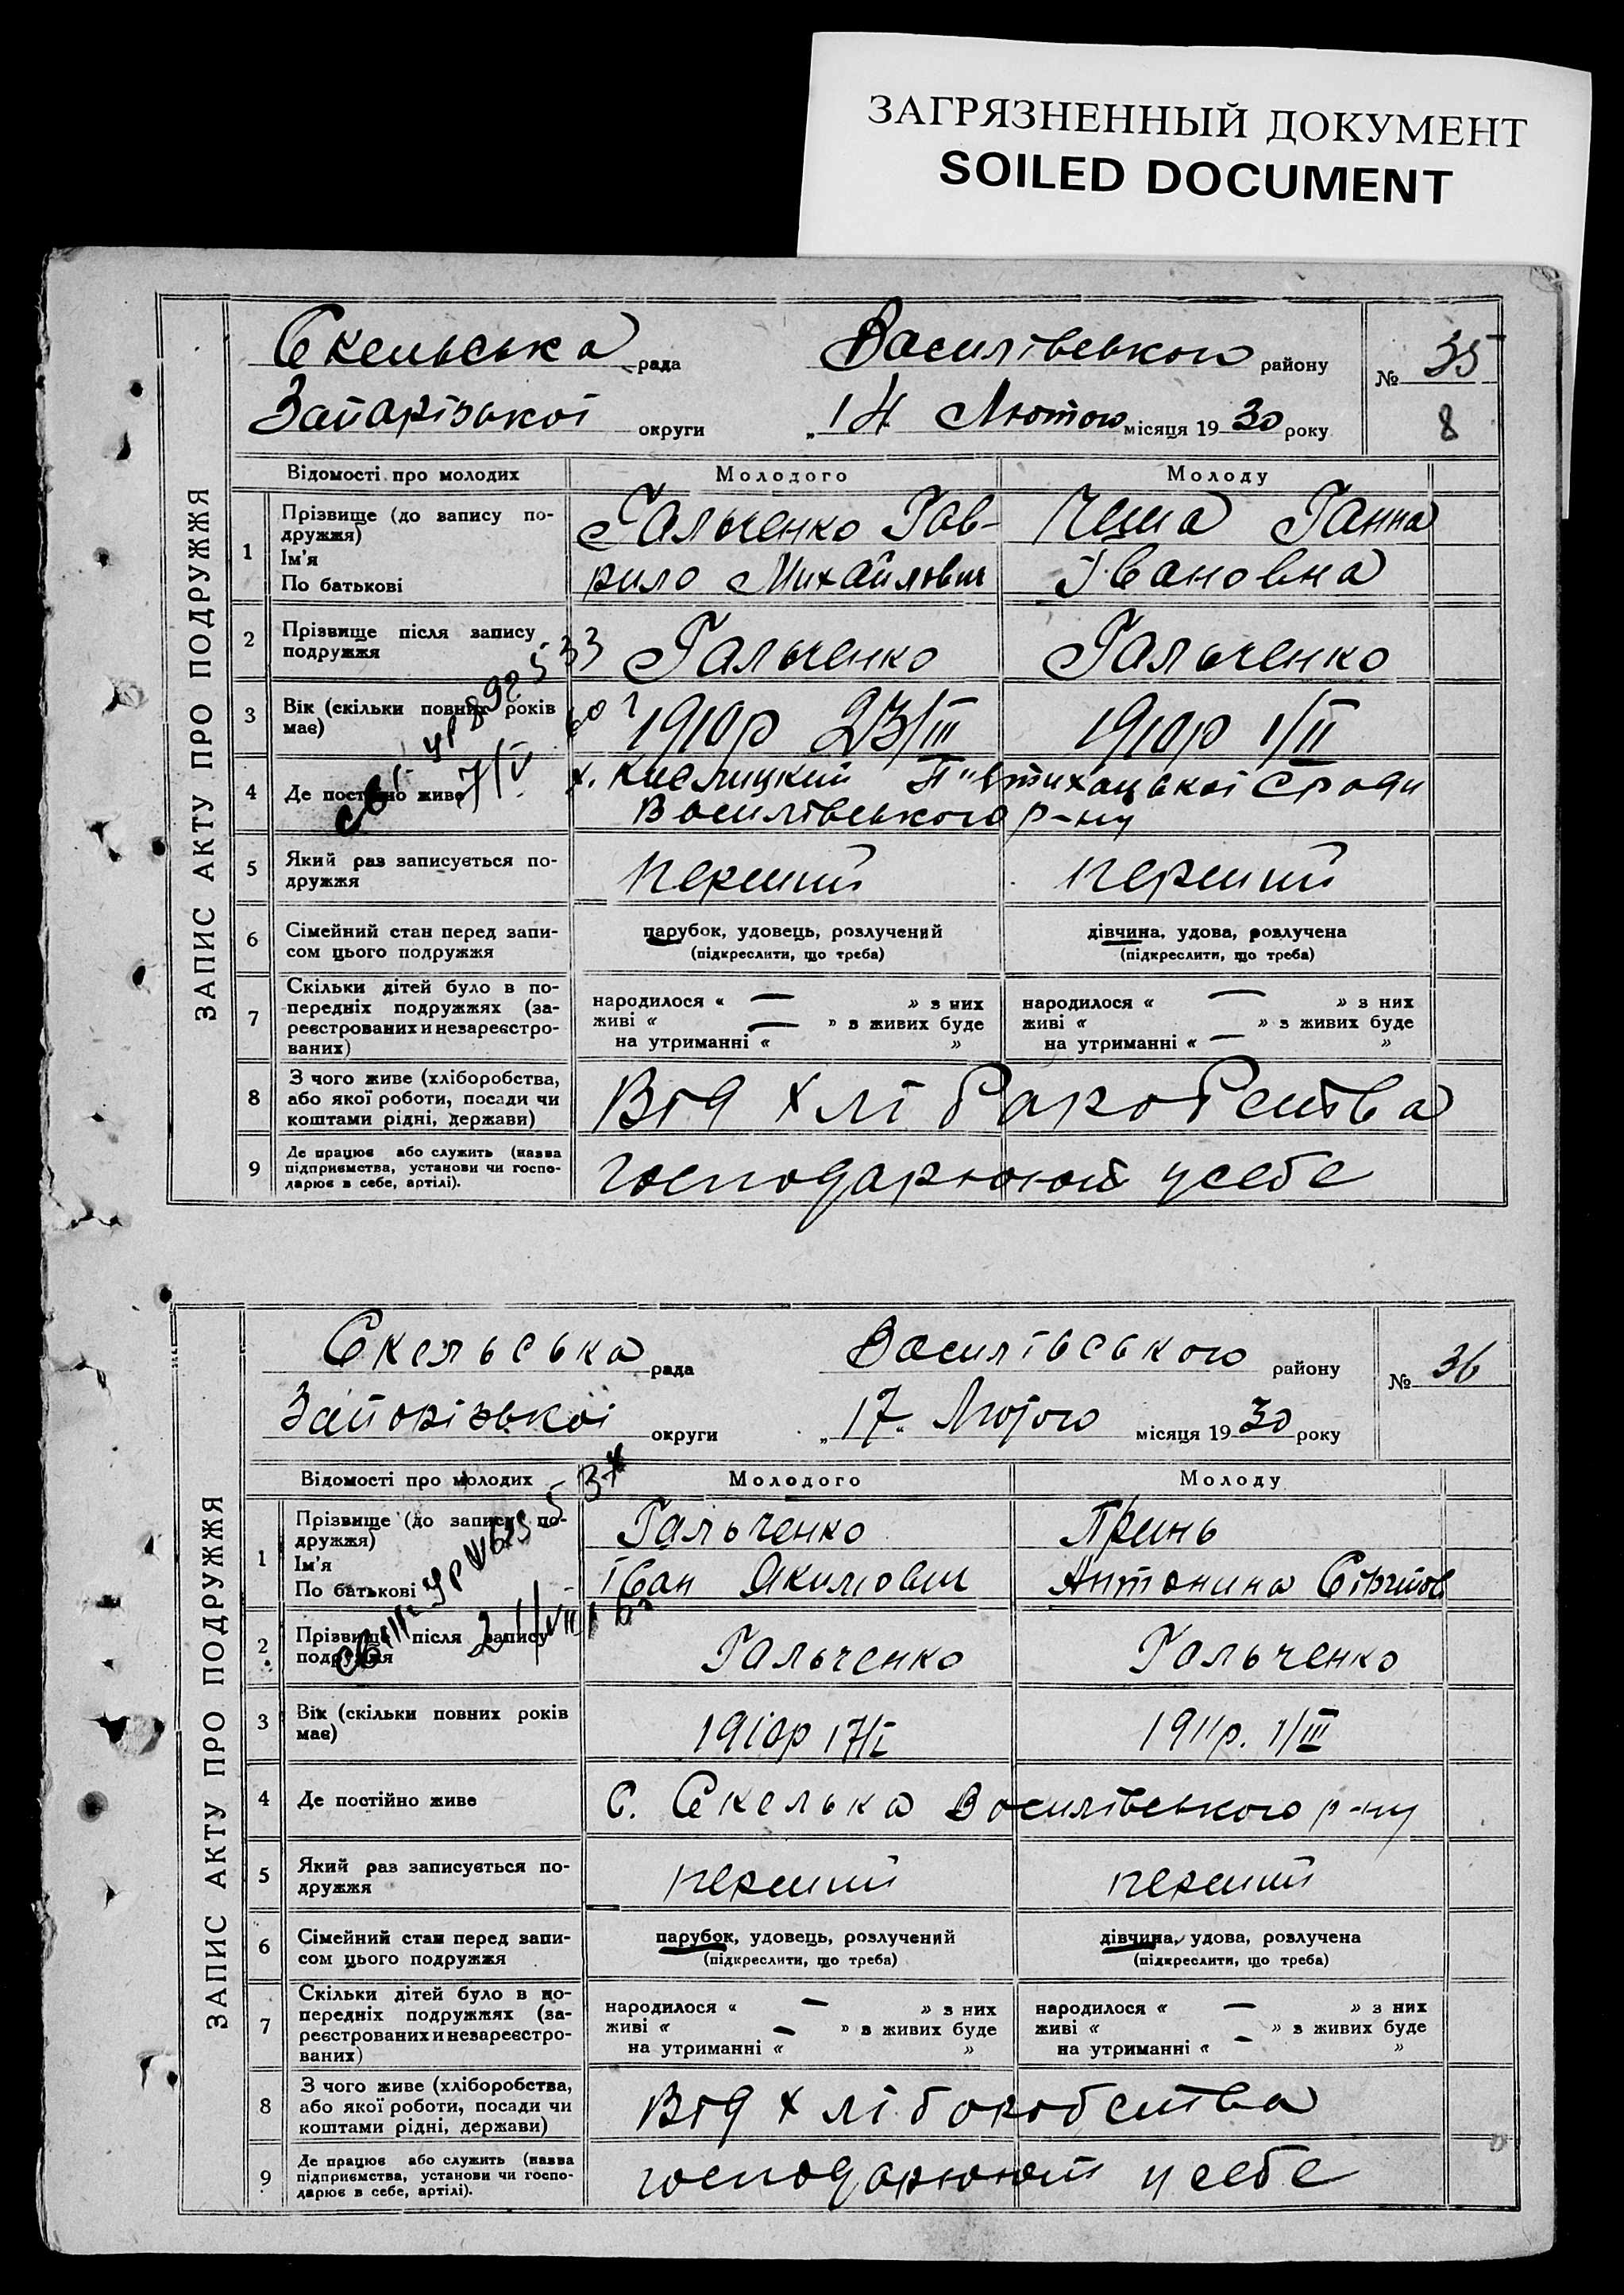 ЗАГРЯЗНЕННЫЙ ДОКУМЕНТ
SOILED DOCUMENT
ЗАПИС АКТУ ПРО ПОДРУЖЖЯ
Скельська рада Василівського району № 35
Запорізької округи „14 Лютого місяця 1930 року 8
Відомості про молодих Молодого Молоду
1 Прізвище (до запису по-
дружжя)
Ім'я
По батькові
Гальченко Гав-
рило Михайлович
Ганна
Івановна
2 Прізвище після запису
подружжя
Гальченко Гальченко
3 Вік (скільки повних років
має)
1910р 23/III 1910р 1/II
4 Де постійно живе
х. Кислицкий сради
Василівського р-ну
7/V
5 Який раз записується по-
дружжя
перший перший
6 Сімейний стан перед запи-
сом цього подружжя
парубок, удовець, розлучений
(підкреслити, що треба)
дівчина, удова, розлучена
(підкреслити, що треба)
7 Скільки дітей було в по-
передніх подружжях (за-
реєстрованих и незареєстро-
ваних)
народилося « — » з них
живі « — » з живих буде
на утриманні « »
народилося « — » з них
живі « » з живих буде
на утриманні « — »
8 З чого живе (хліборобства,
або якої роботи, посади чи
коштами рідні, держави)
Від хліборобства
9 Де працює або служить (назва
підприємства, установи чи госпо-
дарює в себе, артілі).
господарюют у себе
ЗАПИС АКТУ ПРО ПОДРУЖЖЯ
Скельська рада Василівського району № 36
Запорізької округи „17„ Лютого місяця 1930 року
Відомості про молодих Молодого Молоду
1 Прізвище (до запису по-
дружжя)
Ім'я
По батькові
Гальченко
Іван Якимович
Антонина
2 Прізвище після запису
подружжя
Гальченко Гальченко
3 Вік (скільки повних років
має)
1910р 17/I 1911р. 1/III
4 Де постійно живе
С. Скелька Василівського р-ну
5 Який раз записується по-
дружжя
перший перший
6 Сімейний стан перед запи-
сом цього подружжя
парубок, удовець, розлучений
(підкреслити, що треба)
дівчина, удова, розлучена
(підкреслити, що треба)
7 Скільки дітей було в по-
передніх подружжях (за-
реєстрованих и незареєстро-
ваних)
народилося « — » з них
живі « — » з живих буде
на утриманні « »
народилося « — » з них
живі « » з живих буде
на утриманні « — »
8 З чого живе (хліборобства,
або якої роботи, посади чи
коштами рідні, держави)
Від хліборобства
9 Де працює або служить (назва
підприємства, установи чи госпо-
дарює в себе, артілі).
господарюют у себе